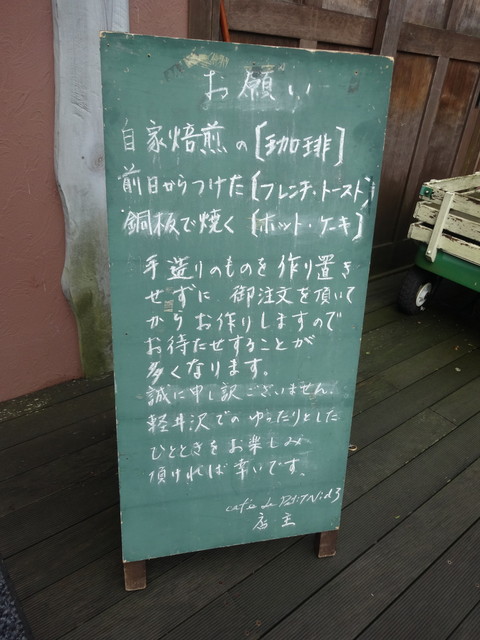 お願い
自家焙煎の[珈琲]
前日からつけた[フレンチ・トースト]
銅板で焼く[ホット・ケーキ]
手造りのものを作り置き
せずに 御注文を頂いて
からお作りしますので
お待たせすることが
多くなります。
誠に申し訳ございません。
軽井沢でのゆったりとした
ひとときをお楽しみ
頂ければ幸いです。
cafe de Petit Nid 3
店主